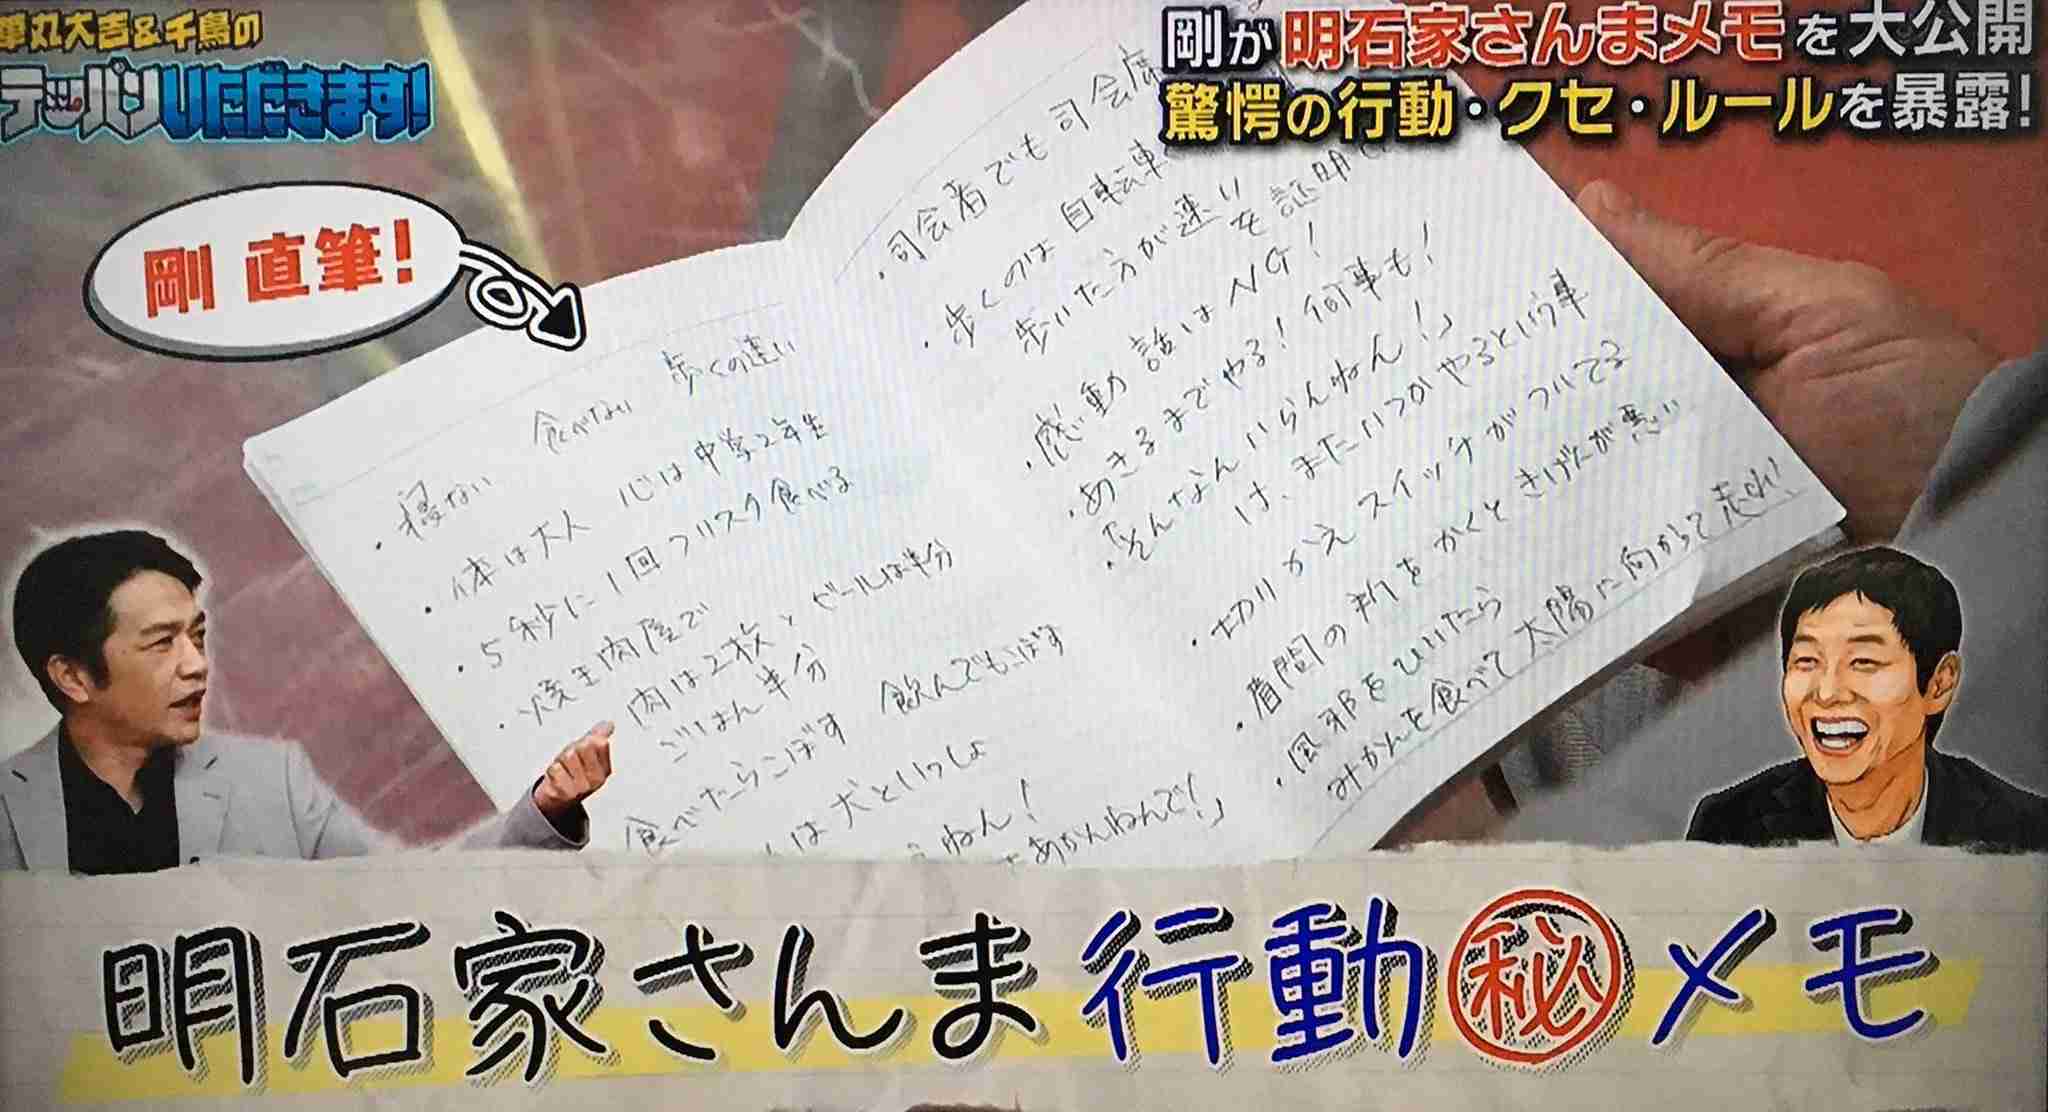 華丸大吉&千鳥の
テッパンいただきます!
剛が明石家さんまメモを大公開
驚愕の行動・クセ・ルールを暴露!
剛 直筆!
・寝ない 食べない 歩くの速い
・体は大人 心は中学2年生
・5秒に1回フリスク食べる
・焼き肉屋で
肉は2枚とビールは半分
ごはん半分
食べたらこぼす 飲んでもこぼす
は犬といっしょ
ねん!
あかんねんで!」
・司会者でも司会席
・歩くのは自転車
歩いた方が速い
を証明
・感動話はNG!
・あきるまでやる!何事も!
・「そんなんいらんねん!」
は、またいつかやるという事
・切りかえスイッチがついてる
・眉間の所をかくときげんが悪い
・風邪をひいたら
みかんを食べて太陽に向かって走れ!
明石家さんま行動㊙メモ